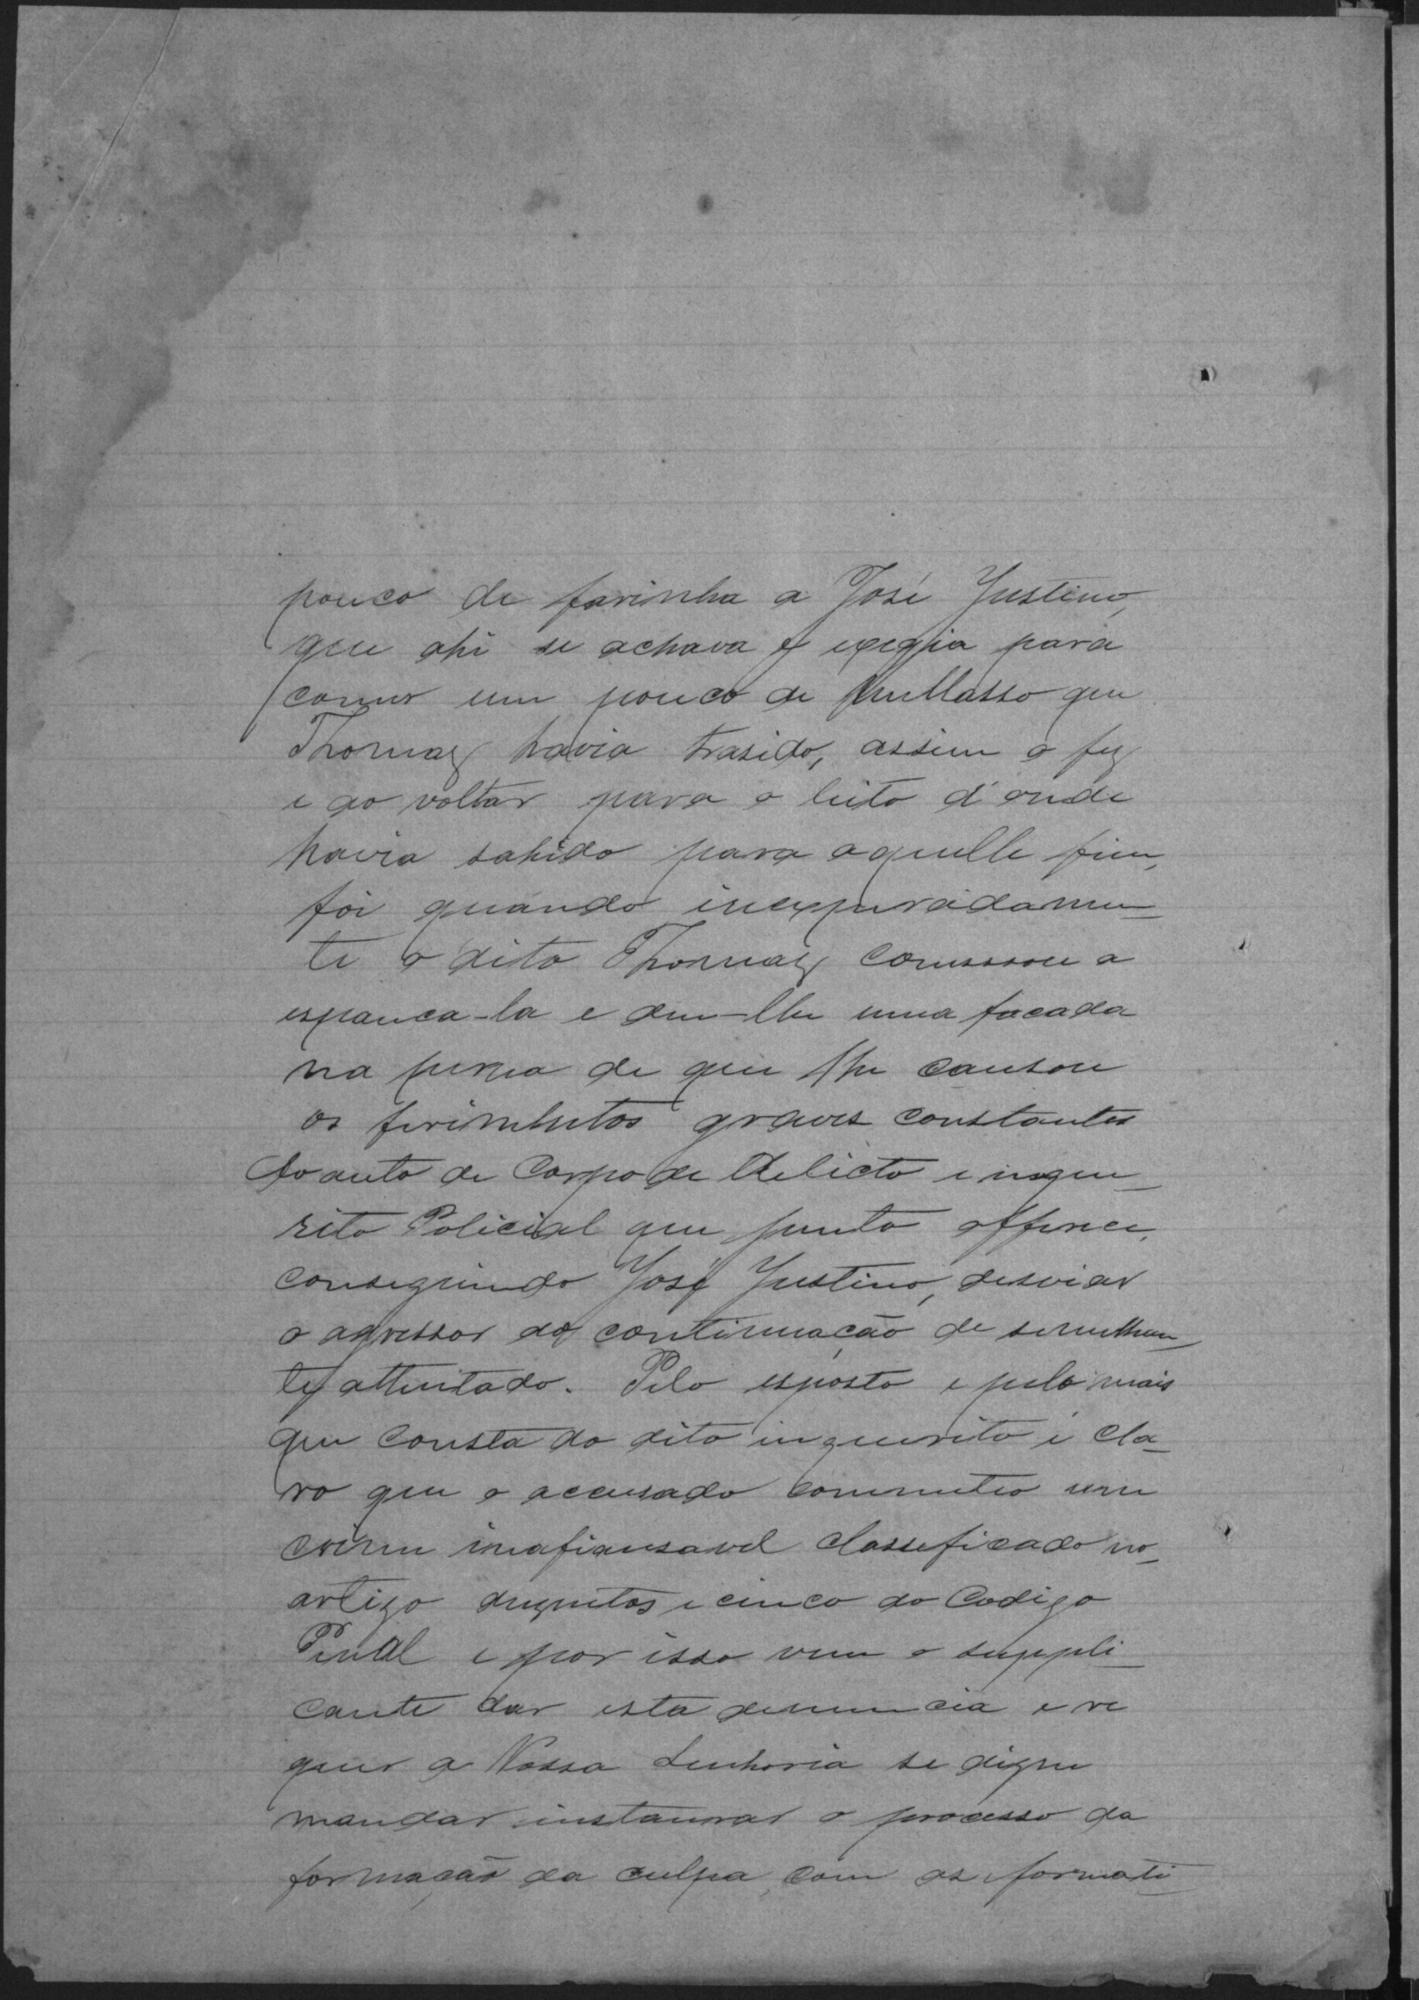 pouco de farinha a José Justino,
que ahi se achava e exegia para
comer um pouco de mellasso que
Thomaz havia trasido, assim o fez
e ao voltar para o leito d'onde
havia sahido para aquelle fim,
foi quando inexperadamen_
te o dito Thomaz comessou a
espanca-la e deu-lhe uma facada
na perna de que lhe causou
os ferimentos graves constantes
do auto de Corpo de Delicto e inque_
rito Policial que junto offerece,
conseguindo José Justino, desviar
o agressor da continuação de semelhan_
te attentado. Pelo esposto e pelo mais
que consta do dito inquerito é cla_
ro que o accusado commetteo um
crime inafiansavel classeficado no_
artigo duzentos e cinco do Codigo
Penal e por isso vem o suppli_
cante dar esta denuncia e re
quer a Vossa Senhoria se digne
mandar instaurar o processo da
formação da culpa com as formati_